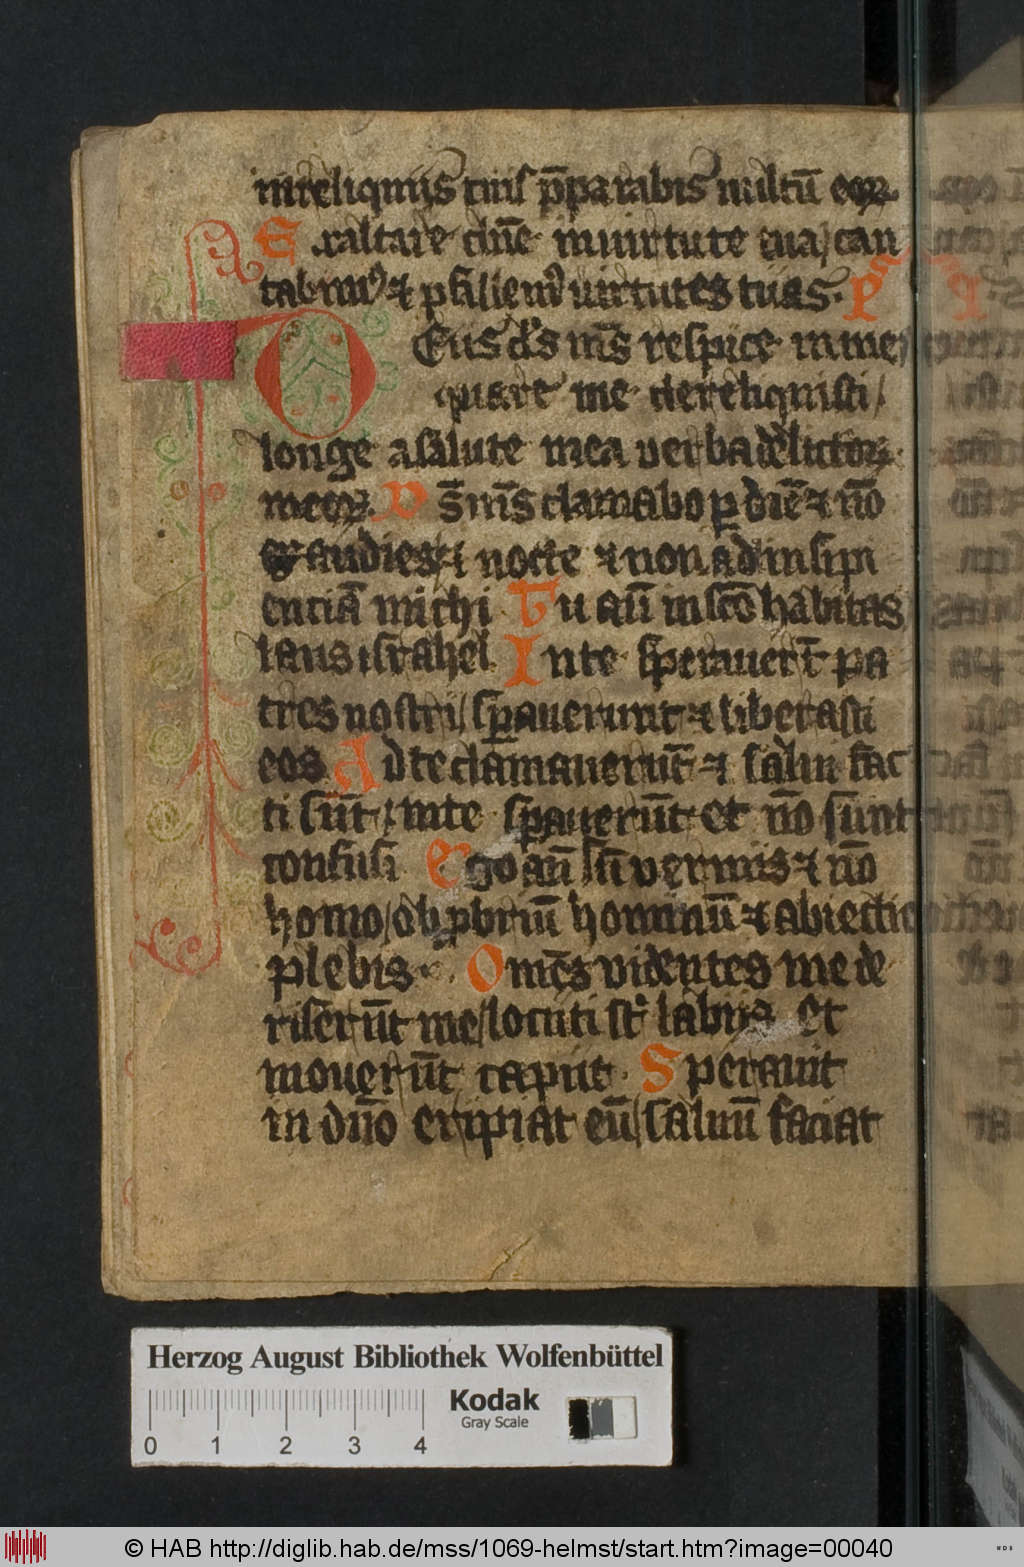 inreliquiis tuis p̄parabis uultū eoꝝ
Exaltare dn̄e inuirtute tua/ can
tabimꝰ ⁊ psallemꝰ uirtutes tuas. pˢ
Deus ds̄ ms̄ respice in me/
quare me dereliquisti/
longe asalute mea uerba delictoꝝ
meoꝝ. Ds̄ ms̄ clamabo ꝑ diē ⁊ nō
exaudies/ ⁊ nocte ⁊ non ad insipi
entiā michi Tu aū in scō habitas
laus israhel Inte sperauerūt pa
tres nostri/ sꝑauerunt ⁊ liberasti
eos Ad te clamauerūt ⁊ salui fac
ti sūt/ inte sꝑauerūt et nō sunt
confusi Ego aū sū vermis ⁊ nō
homo/ obꝓbriū hominū ⁊ abiectio
plebis. Omēs videntes me de
riserūt me/ locuti st̄ labiis et
mouerūt caput Sperauit
in dn̄o eripiat eū/ saluū faciat
Herzog August Bibliothek Wolfenbüttel
Kodak
Gray Scale
0 1 2 3 4
© HAB http://diglib.hab.de/mss/1069-helmst/start.htm?image=00040